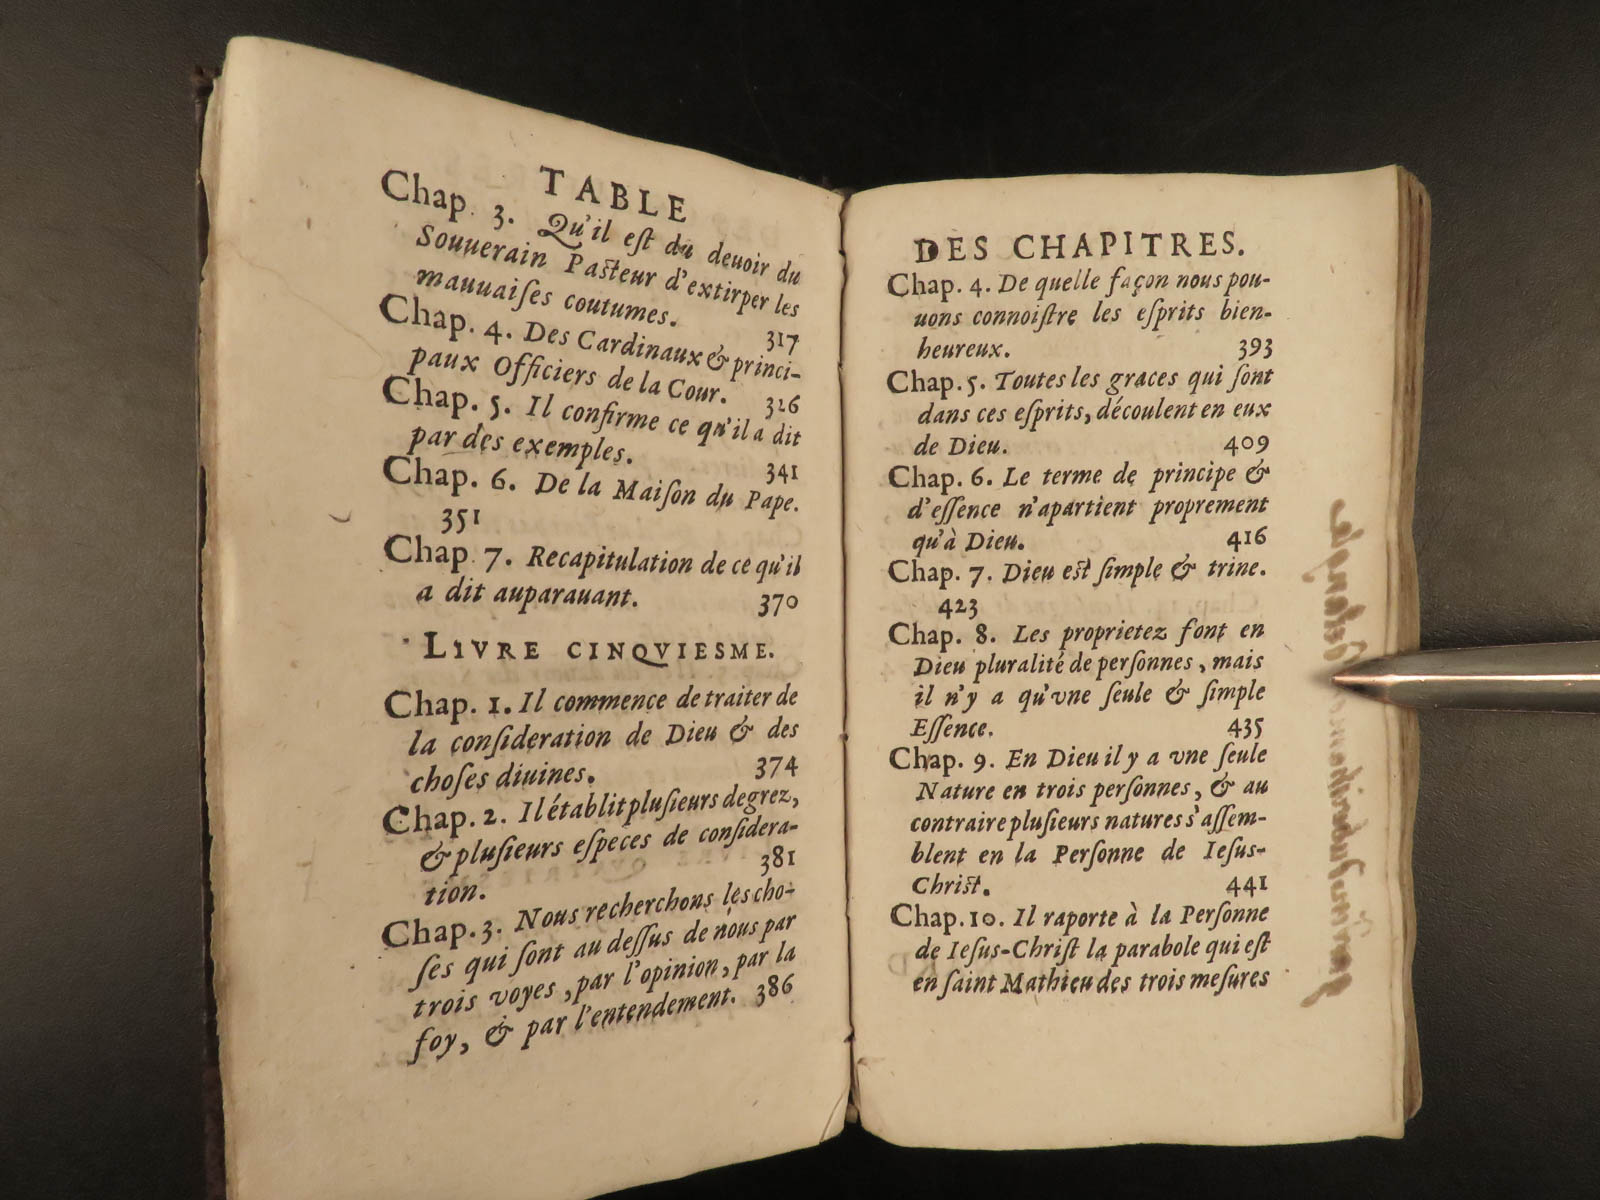 TABLE
Chap. 3. Qu'il eſt du deuoir du
Souuerain Paſteur d'extirper les
mauuaiſes coutumes. 317
Chap. 4. Des Cardinaux & princi-
paux Officiers de la Cour. 326
Chap. 5. Il confirme ce qu'il a dit
par des exemples. 341
Chap. 6. De la Maiſon du Pape.
351
Chap. 7. Recapitulation de ce qu'il
a dit auparauant. 370
LIVRE CINQVIESME.
Chap. 1. Il commence de traiter de
la conſideration de Dieu & des
choſes diuines. 374
Chap. 2. Il établit pluſieurs degrez,
& pluſieurs eſpeces de conſidera-
tion. 381
Chap. 3. Nous recherchons les cho-
ſes qui ſont au deſſus de nous par
trois voyes, par l'opinion, par la
foy, & par l'entendement. 386
DES CHAPITRES.
Chap. 4. De quelle façon nous pou-
uons connoiſtre les eſprits bien-
heureux. 393
Chap. 5. Toutes les graces qui ſont
dans ces eſprits, découlent en eux
de Dieu. 409
Chap. 6. Le terme de principe &
d'eſſence n'apartient proprement
qu'à Dieu. 416
Chap. 7. Dieu eſt ſimple & trine.
423
Chap. 8. Les proprietez font en
Dieu pluralité de perſonnes, mais
il n'y a qu'vne ſeule & ſimple
Eſſence. 435
Chap. 9. En Dieu il y a vne ſeule
Nature en trois perſonnes, & au
contraire pluſieurs natures s'aſſem-
blent en la Perſonne de Ieſus-
Chriſt. 441
Chap. 10. Il raporte à la Perſonne
de Ieſus-Chriſt la parabole qui eſt
en ſaint Mathieu des trois meſures